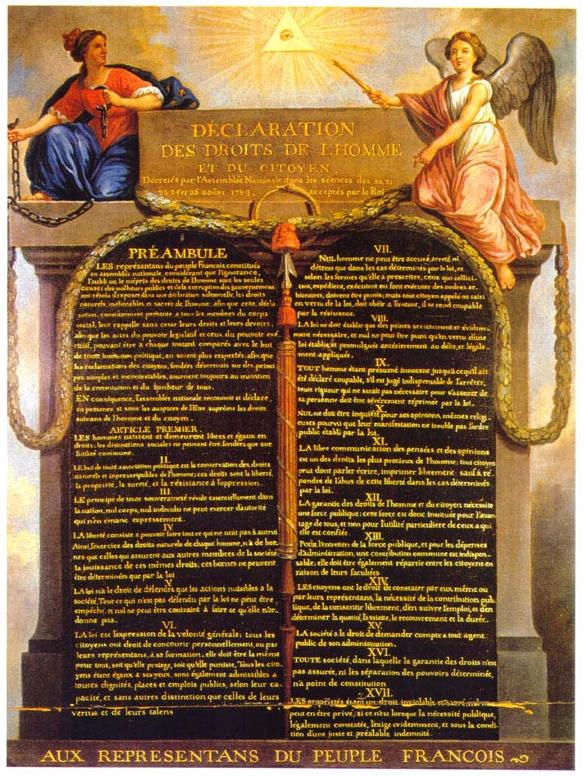 DÉCLARATION
DES DROITS DE L'HOMME
ET DU CITOYEN
Décretés par l'Assemblée Nationale dans les séances des 20, 21
23, 24 et 26 août 1789, acceptés par le Roi
PRÉAMBULE
LES représentans du peuple François, constitués
en assemblée nationale, considérant que l'ignorance,
l'oubli ou le mépris des droits de l'homme sont les seules
causes des malheurs publics et de la corruption des gouvernemens
ont résolu d'exposer dans une déclaration solemnelle, les droits
naturels, inaliénables et sacrés de l'homme; afin que cette décla
ration, constamment présente a tous les membres du corps
social, leur rappelle sans cesse leurs droits et leurs devoirs;
afin que les actes du pouvoir législatif et ceux du pouvoir exé
cutif, pouvant être a chaque instant comparés avec le but
de toute institution politique, en soient plus respectés; afin que
les reclamations des citoyens, fondées désormais sur des princi
pes simples et incontestables, tournent toujours au maintien
de la constitution et du bonheur de tous.
EN conséquence, l'assemblée nationale reconnoit et déclare
en presence et sous les auspices de l'Etre suprême les droits
suivans de l'homme et du citoyen.
ARTICLE PREMIER.
LES hommes naissent et demeurent libres et égaux en
droits; les distinctions sociales ne peuvent être fondées que sur
l'utilité commune.
II.
LE but de toute association politique est la conservation des droits
naturels et imprescriptibles de l'homme; ces droits sont la liberté,
la propriété, la sureté, et la résistance à l'oppression.
III.
LE principe de toute souveraineté réside essentiellement dans
la nation, nul corps, nul individu ne peut exercer d'autorité
qui n'en émane expressement.
IV.
LA liberté consiste a pouvoir faire tout ce qui ne nuit pas à autrui
Ainsi, l'exercice des droits naturels de chaque homme, n'a de bor
nes que celles qui assurent aux autres membres de la société
la jouissance de ces mêmes droits; ces bornes ne peuvent
être déterminées que par la loi
V.
LA loi n'a le droit de défendre que les actions nuisibles a la
société. Tout ce qui n'est pas défendu par la loi ne peut être
empêché, et nul ne peut être contraint à faire ce qu'elle n'or-
donne pas.
VI.
LA loi est l'expression de la volonté générale; tous les
citoyens ont droit de concourir personnellement, ou par
leurs représentans, à sa formation; elle doit être la même
pour tous, soit qu'elle protege, soit qu'elle punisse. Tous les cito
yens étant égaux à ses yeux, sont également admissibles a
toutes dignités, places et emplois publics, selon leur ca-
pacité, et sans autres distinction que celles de leurs
vertus et de leurs talens
VII.
NUL homme ne peut être accusé, arreté, ni
détenu que dans les cas déterminés par la loi, et
selon les formes qu'elle a prescrites, ceux qui sollici-
tent, expédient, exécutent ou font exécuter des ordres ar-
bitraires, doivent être punis; mais tout citoyen appelé ou saisi
en vertu de la loi, doit obéir a l'instant, il se rend coupable
par la résistance.
VIII.
LA loi ne doit établir que des peines strictement et évidem-
ment nécessaires, et nul ne peut être puni qu'en vertu d'une
loi établie et promulguée antérieurement au délit, et légale-
ment appliquée.
IX.
TOUT homme étant présumé innocent jusqu'a ce qu'il ait
été déclaré coupable, s'il est jugé indispensable de l'arrêter,
toute rigueur qui ne serait pas nécessaire pour s'assurer de
sa personne doit être sévèrement réprimée par la loi.
X.
NUL ne doit être inquiété pour ses opinions, mêmes religi-
euses pourvu que leur manifestation ne trouble pas l'ordre
public établi par la loi.
XI.
LA libre communication des pensées et des opinions
est un des droits les plus precieux de l'homme; tout citoyen
peut donc parler écrire, imprimer librement sauf a ré-
pondre de l'abus de cette liberté dans les cas déterminés
par la loi.
XII.
LA garantie des droits de l'homme et du citoyen nécessite
une force publique; cette force est donc instituée pour l'avan-
tage de tous, et non pour l'utilité particuliere de ceux a qui
elle est confiée.
XIII.
Pour l'entretien de la force publique, et pour les dépenses
d'administration, une contribution commune est indispen-
sable; elle doit être également répartie entre les citoyens en
raison de leurs facultées
XIV.
LES citoyens ont le droit de constater par eux même ou
par leurs représentans, la nécessité de la contribution pub-
lique, de la consentir librement, d'en suivre l'emploi, et d'en
déterminer la quotité, l'assiette, le recouvrement et la durée.
XV.
LA société a le droit de demander compte a tout agent
public de son administration.
XVI.
TOUTE société, dans laquelle la garantie des droits n'est
pas assurée, ni la séparation des pouvoirs déterminée,
n'a point de constitution.
XVII.
LES propriétés étant un droit inviolable et sacré, nul ne
peut en être privé, si ce n'est lorsque la nécessité publique,
légalement constatée, l'exige évidemment, et sous la condi-
tion d'une juste et préalable indemnité.
AUX REPRESENTANS DU PEUPLE FRANCOIS